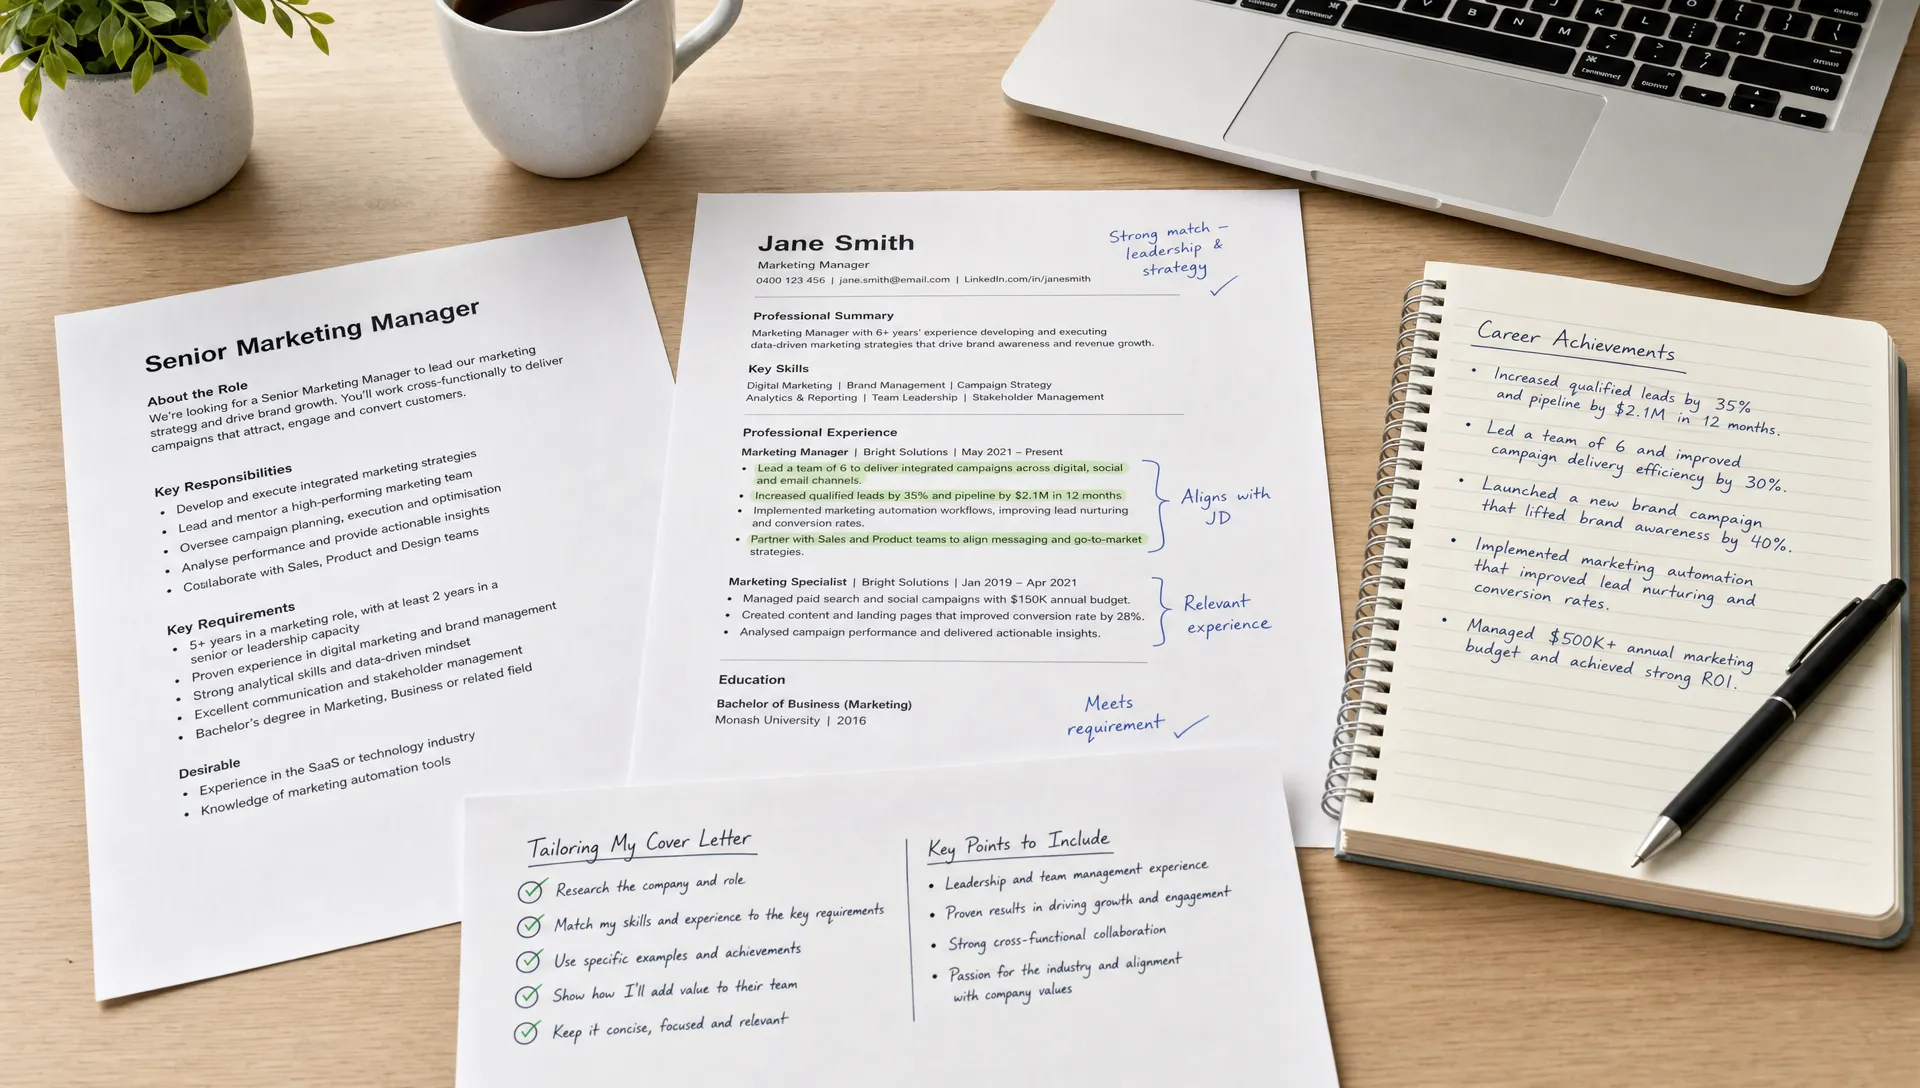 Senior Marketing Manager
About the Role
We're looking for a Senior Marketing Manager to lead our marketing
strategg and drive brand growth. You'll work cross-functionally to deliver
campaigns that attract, engage and convert customers.
Key Responsibilities
• Develop and execute integrated marketing strategies
• Lead and mentor a high-performing marketing team
• Oversee campaign planning, execution and optimisation
• Analyse performance and provide actionable insights
• Collaborate with Sales, Product and Design teams
Key Requirements
• 5+ years in a marketing role, with at least 2 years in a
senior or leadership capacity
• Proven experience in digital marketing and brand management
• Strong analytical skills and data-driven mindset
• Excellent communication and stakeholder management
• Bachelor's degree in Marketing, Business or related field
Desirable
• Experience in the SaaS or technology industry
• Knowledge of marketing automation tools
Jane Smith
Marketing Manager
0400 123 456 | jane.smith@email.com | LinkedIn.com/in/janesmith
Strong match –
leadership &
strategy ✓
Professional Summary
Marketing Manager with 6+ years' experience developing and executing
data-driven marketing strategies that drive brand awareness and revenue growth.
Key Skills
Digital Marketing | Brand Management | Campaign Strategy
Analytics & Reporting | Team Leadership | Stakeholder Management
Professional Experience
Marketing Manager | Bright Solutions | May 2021 – Present
• Lead a team of 6 to deliver integrated campaigns across digital, social
and email channels.
• Increased qualified leads by 35% and pipeline by $2.1M in 12 months
• Implemented marketing automation workflows, improving lead nurturing
and conversion rates.
• Partner with Sales and Product teams to align messaging and go-to-market
strategies.
Aligns with
JD
Marketing Specialist | Bright Solutions | Jan 2019 – Apr 2021
• Managed paid search and social campaigns with $150K annual budget.
• Created content and landing pages that improved conversion rate by 28%.
• Analysed campaign performance and delivered actionable insights.
Relevant
experience
Education
Bachelor of Business (Marketing)
Monash University | 2016
Meets
requirement ✓
Career Achievements
• Increased qualified leads by 35%
and pipeline by $2.1M in 12 months.
• Led a team of 6 and improved
campaign delivery efficiency by 30%.
• Launched a new brand campaign
that lifted brand awareness by 40%.
• Implemented marketing automation
that improved lead nurturing and
conversion rates.
• Managed $500K+ annual marketing
budget and achieved strong ROI.
Tailoring My Cover Letter
✓ Research the company and role
✓ Match my skills and experience to the key requirements
✓ Use specific examples and achievements
✓ Show how I'll add value to their team
✓ Keep it concise, focused and relevant
Key Points to Include
• Leadership and team management experience
• Proven results in driving growth and engagement
• Strong cross-functional collaboration
• Passion for the industry and alignment
with company values